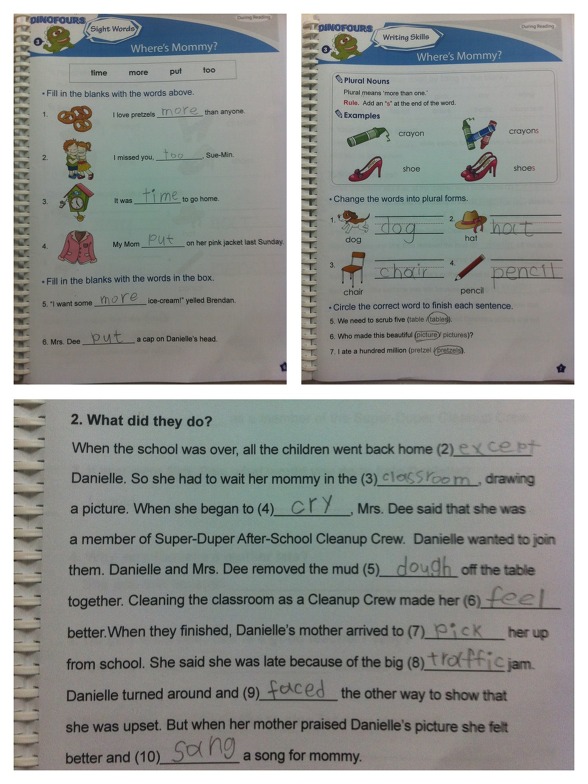 DINOFOURS
Sight Words
During Reading
3
Where's Mommy?
time more put too
• Fill in the blanks with the words above.
1. I love pretzels more than anyone.
2. I missed you, too, Sue-Min.
3. It was time to go home.
4. My Mom put on her pink jacket last Sunday.
• Fill in the blanks with the words in the box.
5. "I want some more ice-cream!" yelled Brendan.
6. Mrs. Dee put a cap on Danielle's head.
DINOFOURS
Writing Skills
During Reading
3
Where's Mommy?
Plural Nouns
Plural means 'more than one.'
Rule. Add an "s" at the end of the word.
Examples
crayon crayons
shoe shoes
• Change the words into plural forms.
1. dog 2. hat
dog hat
3. chair 4. pencil
chair pencil
• Circle the correct word to finish each sentence.
5. We need to scrub five (table / tables).
6. Who made this beautiful (picture / pictures)?
7. I ate a hundred million (pretzel / pretzels).
2. What did they do?
When the school was over, all the children went back home (2) except
Danielle. So she had to wait her mommy in the (3) classroom, drawing
a picture. When she began to (4) cry, Mrs. Dee said that she was
a member of Super-Duper After-School Cleanup Crew. Danielle wanted to join
them. Danielle and Mrs. Dee removed the mud (5) dough off the table
together. Cleaning the classroom as a Cleanup Crew made her (6) feel
better.When they finished, Danielle's mother arrived to (7) pick her up
from school. She said she was late because of the big (8) traffic jam.
Danielle turned around and (9) faced the other way to show that
she was upset. But when her mother praised Danielle's picture she felt
better and (10) sang a song for mommy.